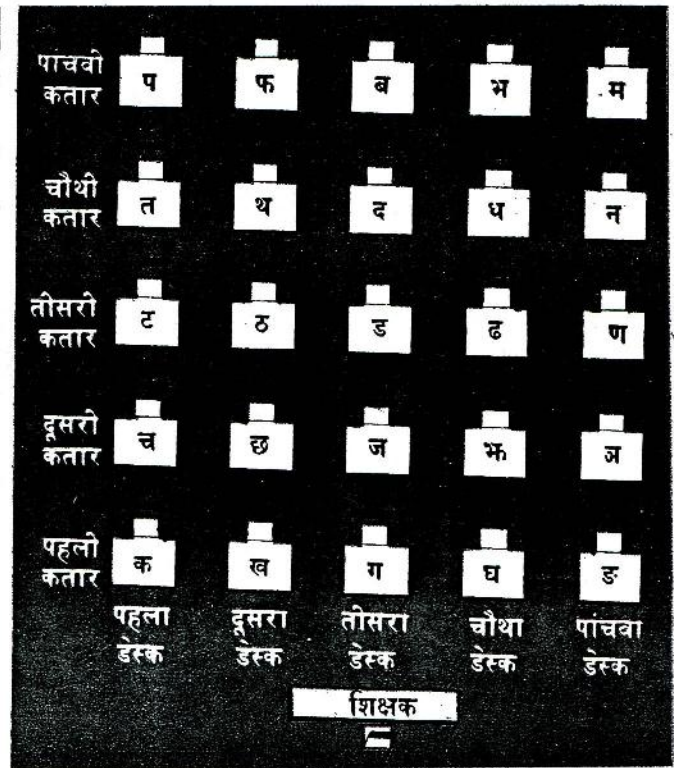 पाचवी
कतार
प फ ब भ म
चौथी
कतार
त थ द ध न
तीसरी
कतार
ट ठ ड ढ ण
दूसरी
कतार
च छ ज झ ञ
पहली
कतार
क ख ग घ ङ
पहला दूसरा तीसरा चौथा पांचवा
डेस्क डेस्क डेस्क डेस्क डेस्क
शिक्षक